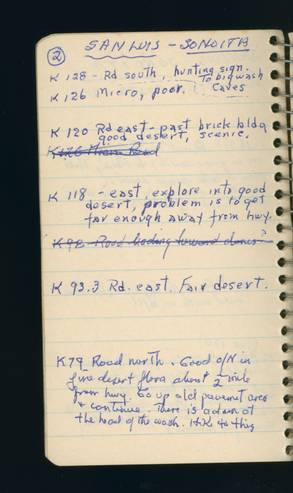 ② SAN LUIS - SONOITA
K 128 - Rd south, hunting sign.
To big wash
K 126 Micro, poor. Caves
K 120 Rd east - past brick bldg
good desert, scenic.
K 126 Micro Road
K 118 - east, explore into good
desert, problem is to get
far enough away from hwy.
K 98 Road leading toward dunes?
K 93.3 Rd. east. Fair desert.
K79 Road north. Good O/N in
fine desert flora about 2 mile
from hwy. Go up old pavement area
+ continue. There is a dam at
the head of the wash. Hike to this